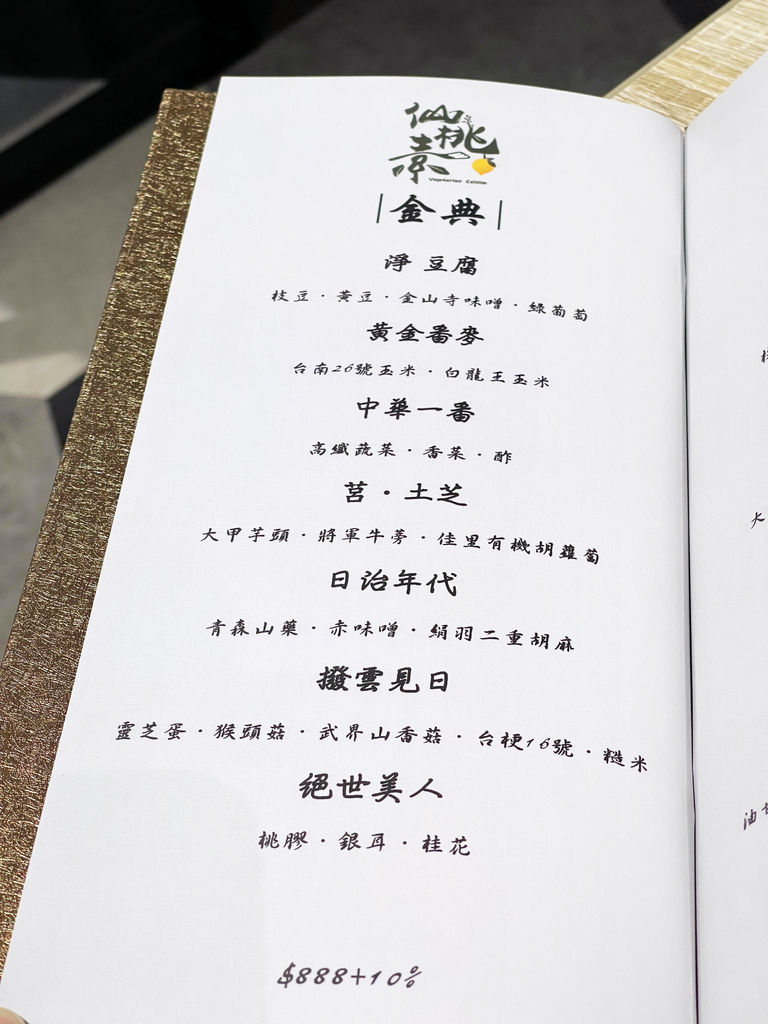 仙桃素
Vegetarian Cuisine
金典
淨豆腐
枝豆・黃豆・金山寺味噌・綠葡萄
黃金番麥
台南26號玉米・白龍王玉米
中華一番
高纖蔬菜・香菜・酢
莒・土芝
大甲芋頭・將軍牛蒡・佳里有機胡蘿蔔
日治年代
青森山藥・赤味噌・絹羽二重胡麻
撥雲見日
靈芝蛋・猴頭菇・武界山香菇・台梗16號・糙米
絕世美人
桃膠・銀耳・桂花
$888+10%
大
油